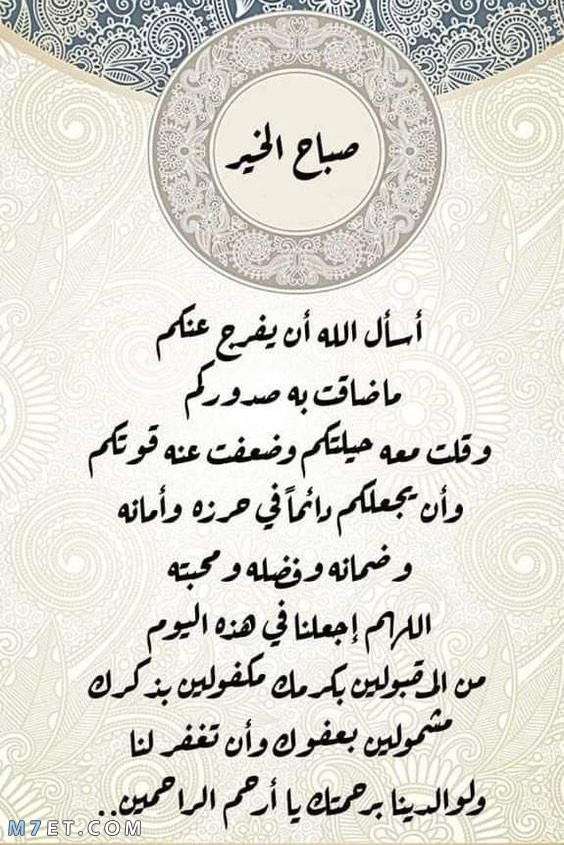 صباح الخير
أسأل الله أن يفرج عنكم
ماضاقت به صدوركم
وقلت معه حيلتكم وضعفت عنه قوتكم
وأن يجعلكم دائماً في حرزه وأمانه
وضمانه وفضله ومحبته
اللهم إجعلنا في هذه اليوم
من المقبولين بكرمك مكفولين بذكرك
مشمولين بعفوك وأن تغفر لنا
ولوالدينا برحمتك يا أرحم الراحمين..
M7ET.COM